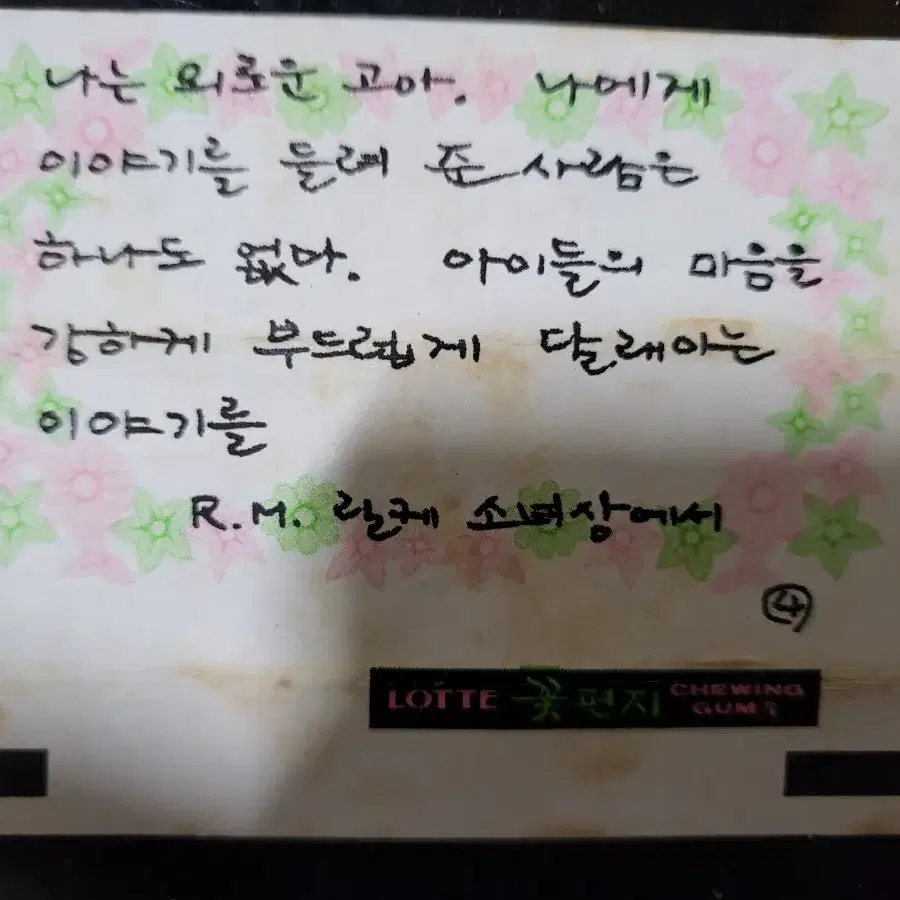 나는 외로운 고아. 나에게
이야기를 들려 준 사람은
하나도 없다. 아이들의 마음을
강하게 부드럽게 달래이는
이야기를
R.M. 릴케 소녀상에서
④
LOTTE 꽃편지 CHEWING GUM